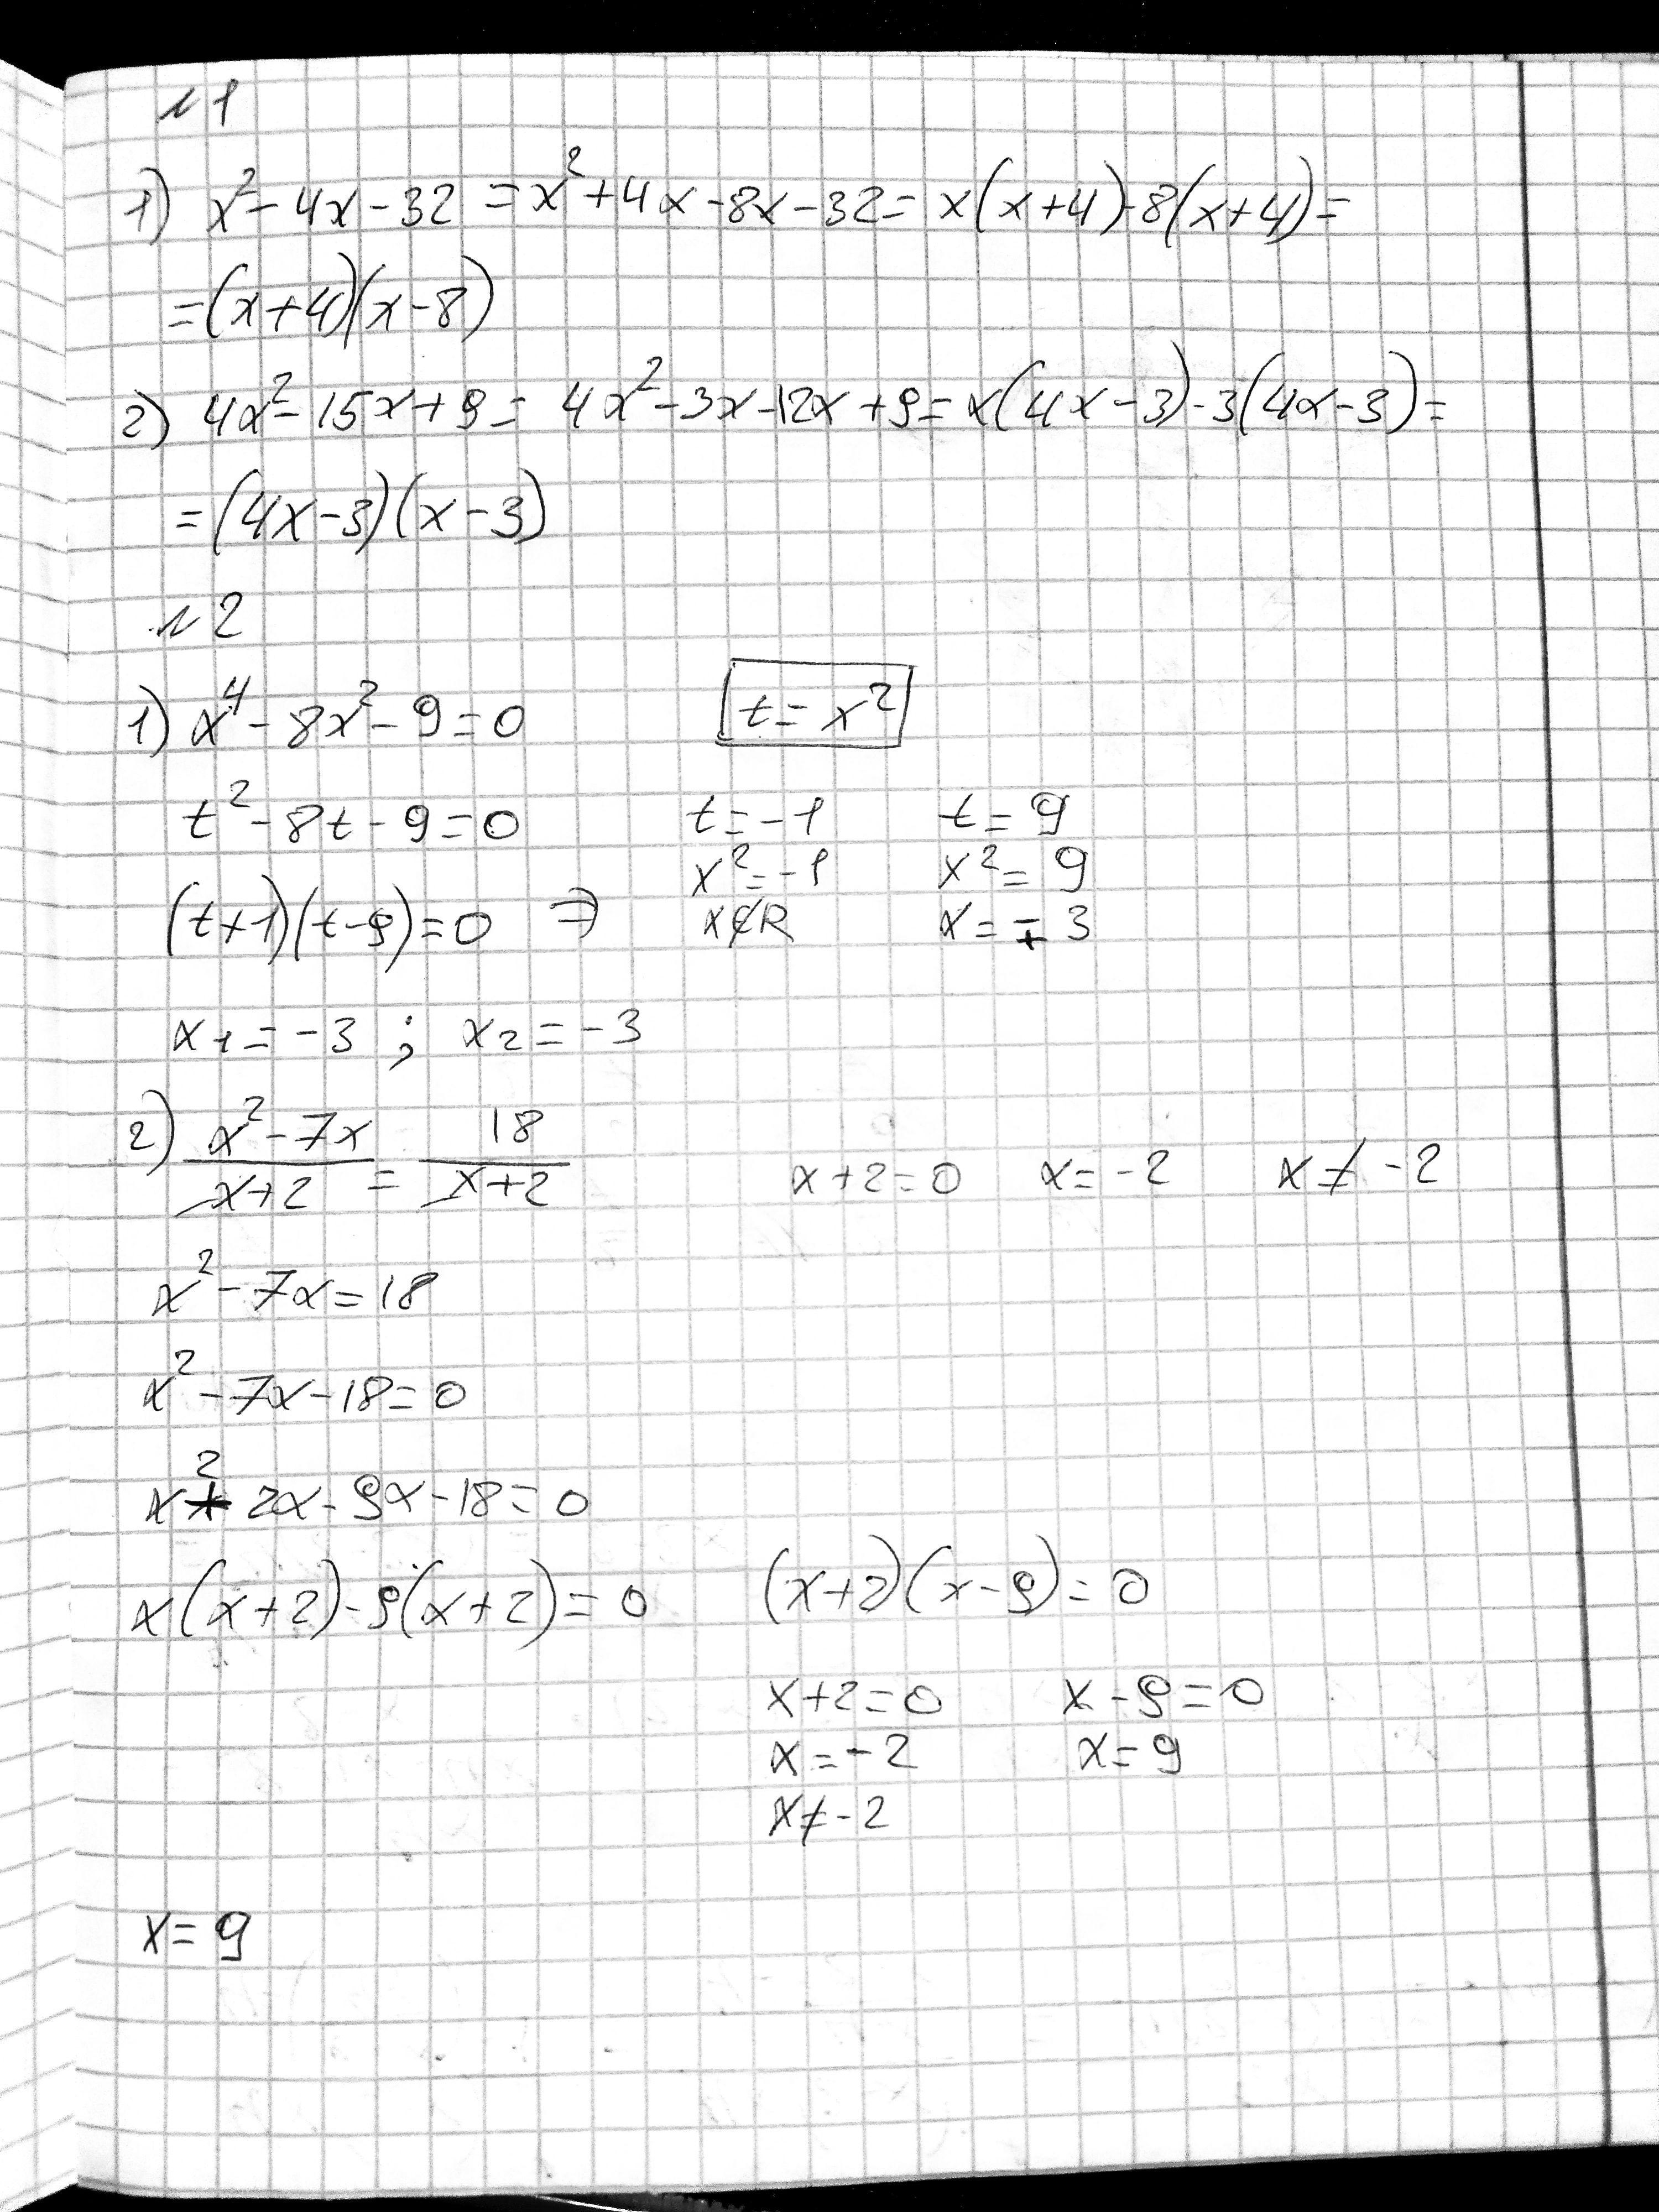 №1
1) x² - 4x - 32 = x² + 4x - 8x - 32 = x(x+4) - 8(x+4) =
= (x+4)(x-8)
2) 4x² - 15x + 9 = 4x² - 3x - 12x + 9 = x(4x-3) - 3(4x-3) =
= (4x-3)(x-3)
№2
1) x⁴ - 8x² - 9 = 0 t = x²
t² - 8t - 9 = 0 t = -1 t = 9
x² = -1 x² = 9
(t+1)(t-9) = 0 ⇒ x∉R x = ∓3
x₁ = -3 ; x₂ = -3
2) (x² - 7x)/(x+2) = 18/(x+2) x+2=0 x=-2 x≠-2
x² - 7x = 18
x² - 7x - 18 = 0
x² + 2x - 9x - 18 = 0
x(x+2) - 9(x+2) = 0 (x+2)(x-9) = 0
x+2=0 x-9=0
x=-2 x=9
x≠-2
x = 9